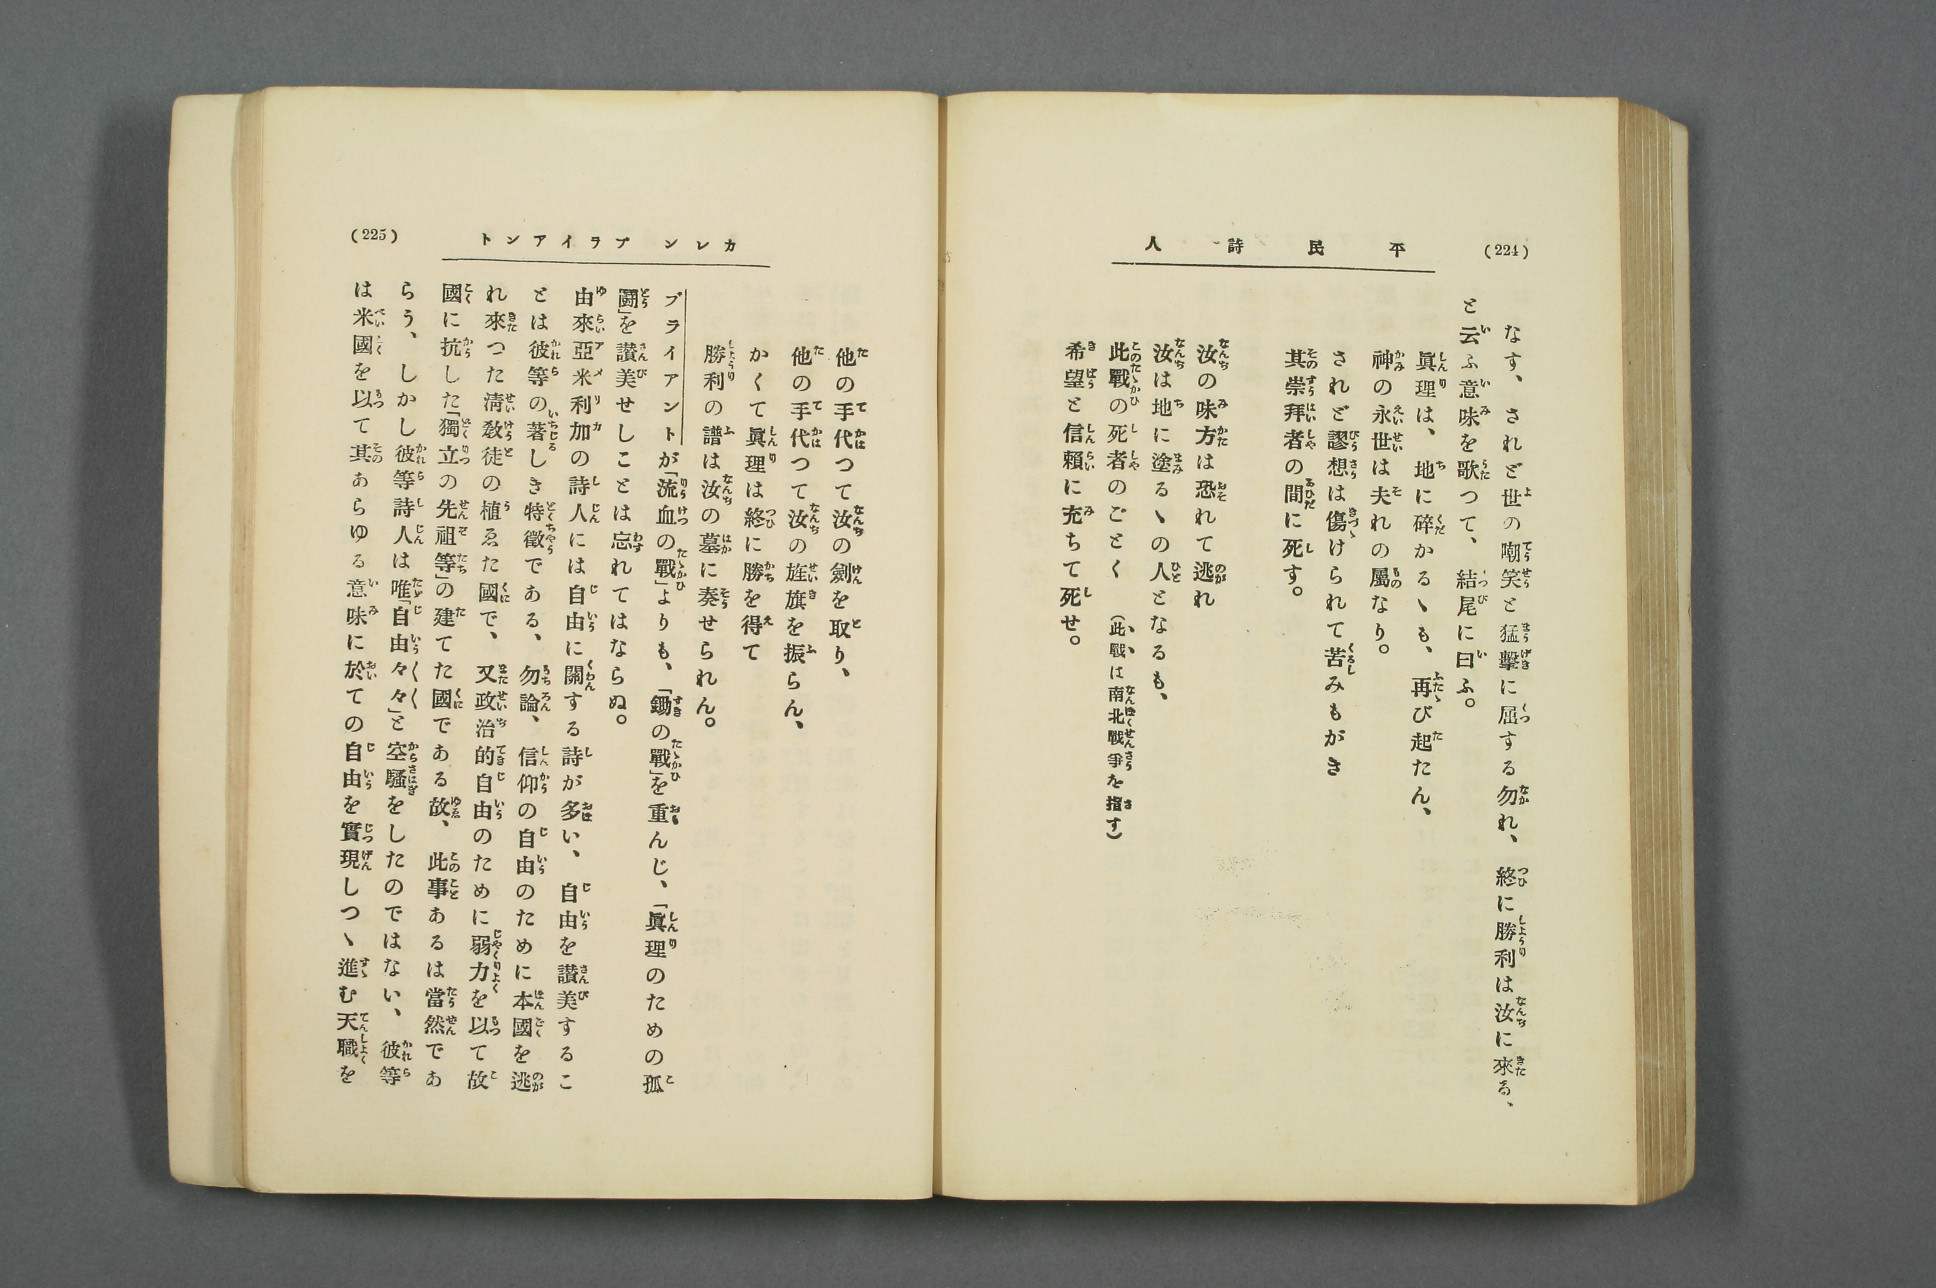 (224)
平民詩人
なす、されど世の嘲笑と猛擊に屈する勿れ、終に勝利は汝に來る、
と云ふ意味を歌つて、結尾に曰ふ。
眞理は、地に碎かるゝも、再び起たん、
神の永世は夫れの屬なり。
されど謬想は傷けられて苦みもがき
其崇拜者の間に死す。
汝の味方は恐れて逃れ
汝は地に塗るゝの人となるも、
此戰の死者のごとく (此戰は南北戰爭を指す)
希望と信賴に充ちて死せ。
カレン ブライアント
(225)
他の手代つて汝の劍を取り、
他の手代つて汝の旌旗を振らん、
かくて眞理は終に勝を得て
勝利の譜は汝の墓に奏せられん。
ブライアントが「流血の戰」よりも、「鋤の戰」を重んじ、「眞理のための孤
鬪」を讃美せしことは忘れてはならぬ。
由來亞米利加の詩人には自由に關する詩が多い、自由を讃美するこ
とは彼等の著しき特徵である、勿論、信仰の自由のために本國を逃
れ來つた淸敎徒の植ゑた國で、又政治的自由のために弱力を以て故
國に抗した「獨立の先祖等」の建てた國である故、此事あるは當然であ
らう、しかし彼等詩人は唯「自由々々」と空騷をしたのではない、彼等
は米國を以て其あらゆる意味に於ての自由を實現しつゝ進む天職を